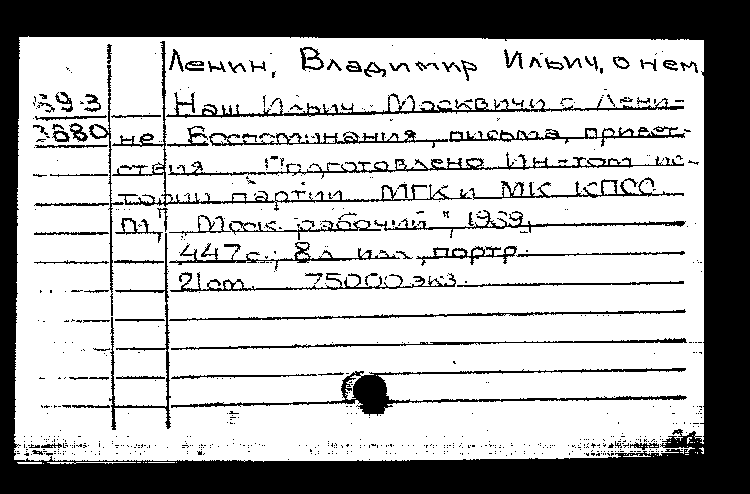 Ленин, Владимир Ильич, о нем.
69-3 Наш Ильич. Москвичи о Лени-
3880 не. Воспоминания, письма, приветствия. Подготовлено Ин-том ис-
тории партии МГК и МК КПСС.
М., "Моск. рабочий", 1969,
447 с.; 8 л. илл., портр.
21 см. 75000 экз.